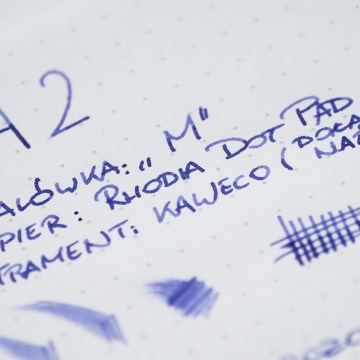 A2
ALÓWKA: „M"
PIER: RHODIA DOT PAD
TRAMENT: KAWECO (